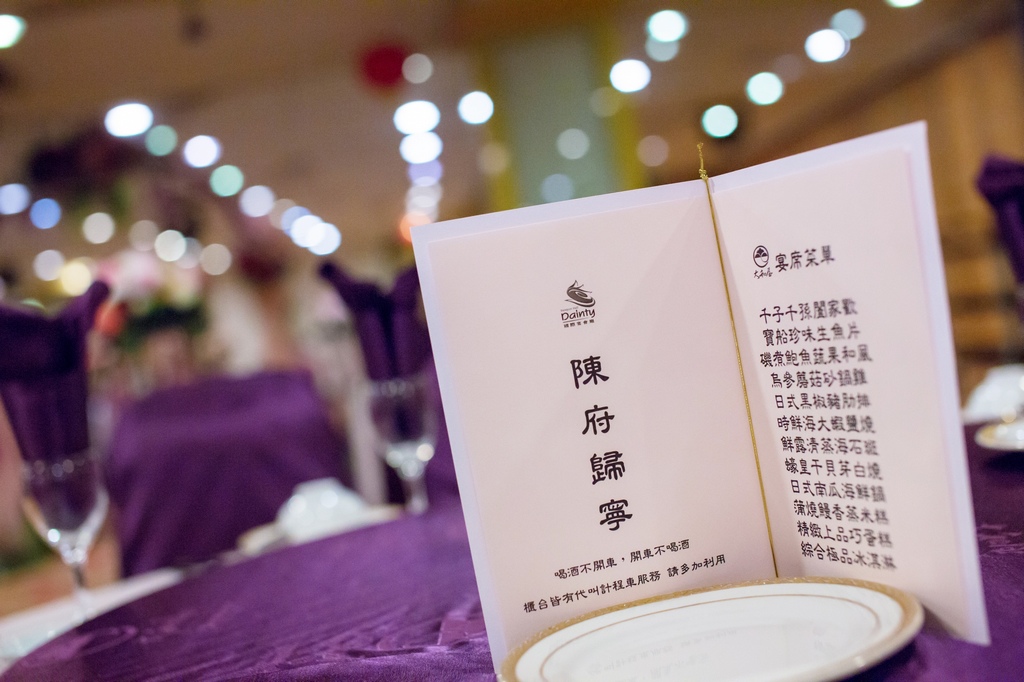 Dainty
國際宴會館
陳府歸寧
喝酒不開車，開車不喝酒
櫃台皆有代叫計程車服務 請多加利用
宴席菜單
千子千孫闔家歡
寶船珍味生魚片
磯煮鮑魚蔬果和風
烏參蘑菇砂鍋雞
日式黑椒豬肋排
時鮮海大蝦鹽燒
鮮露清蒸海石斑
蠔皇干貝芽白燒
日式南瓜海鮮鍋
蒲燒鰻香蒸米糕
精緻上品巧蛋糕
綜合極品冰淇淋